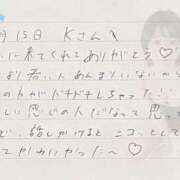 月15日 Kさんへ
に来てくれてありがとう♡
お若い人あんまりいないから
のかドキドキしちゃった!
しい感じの人だなって思って
ど、話しかけるとニコっとして
てかわいかった〜♡